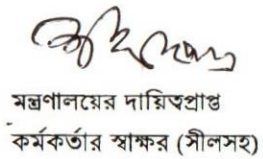 মন্ত্রণালয়ের দায়িত্বপ্রাপ্ত
কর্মকর্তার স্বাক্ষর (সীলসহ)